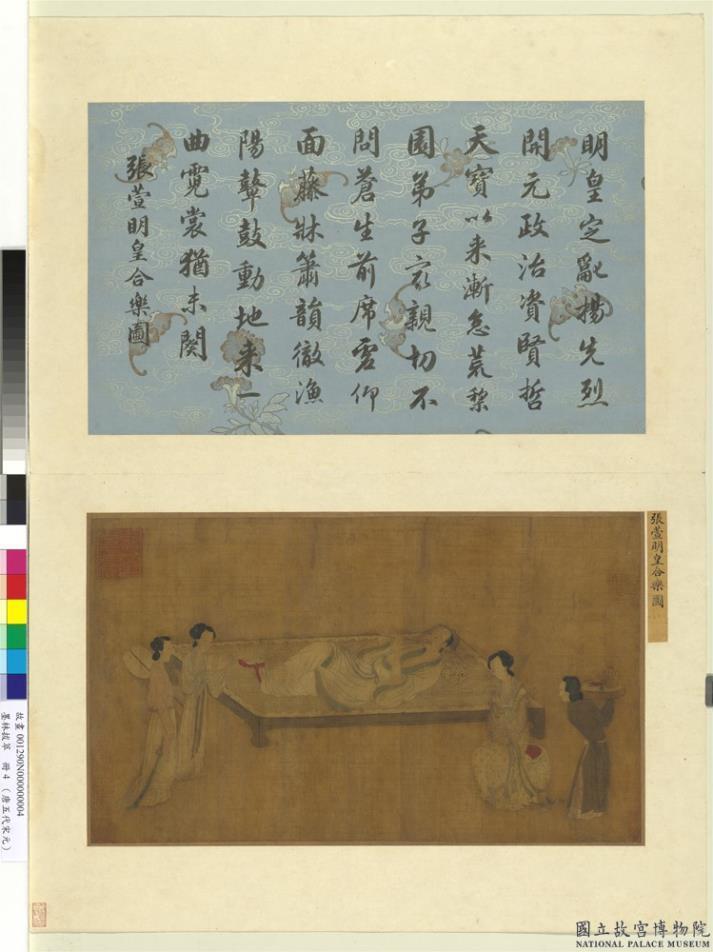 明皇定亂揚先烈
開元政治資賢哲
天寶以来漸怠荒棃
園弟子最親切不
問蒼生前席虛仰
面藤牀簫韻徹漁
陽鼙鼓動地来一
曲霓裳猶未闋
張萱明皇合樂圖
張萱明皇合樂圖
故畫 001290N000000004
墨林拔萃 冊 4 （唐五代宋元）
國立故宮博物院
NATIONAL PALACE MUSEUM